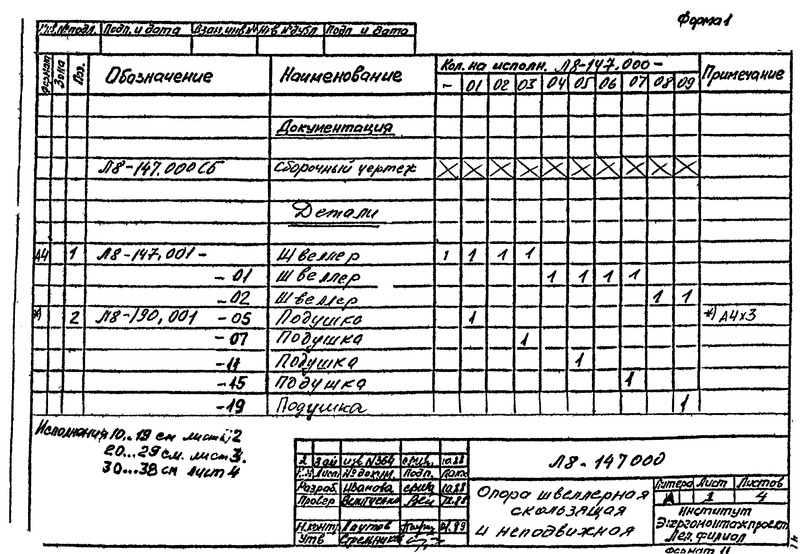 Форма 1
Инв.№подл. Подп. и дата Взам.инв№ Инв №дубл Подп и дата
Формат Зона Поз. Обозначение Наименование Кол. на исполн. Л8-147.000- Примечание
- 01 02 03 04 05 06 07 08 09
Документация
Л8-147.000 СБ Сборочный чертеж X X X X X X X X X X
Детали
А4 1 Л8-147.001- Швеллер 1 1 1 1
-01 Швеллер 1 1 1 1
-02 Швеллер 1 1
*) 2 Л8-190.001 -05 Подушка 1 *) А4х3
-07 Подушка 1
-11 Подушка 1
-15 Подушка 1
-19 Подушка 1
Исполнения 10...19 см листы 2
20...29 см. лист 3.
30...38 см лист 4
2 Зам изв N364 10.88
Лист № докум. Подп. Дата
Разраб. Иванова 10.88
Провер
Н.контр
Утв
Л8-147000
Опора швеллерная
скользящая
и неподвижная
Литера Лист Листов
А 1 4
Институт
Энергомонтажпроект
Лен.филиал
Формат 11